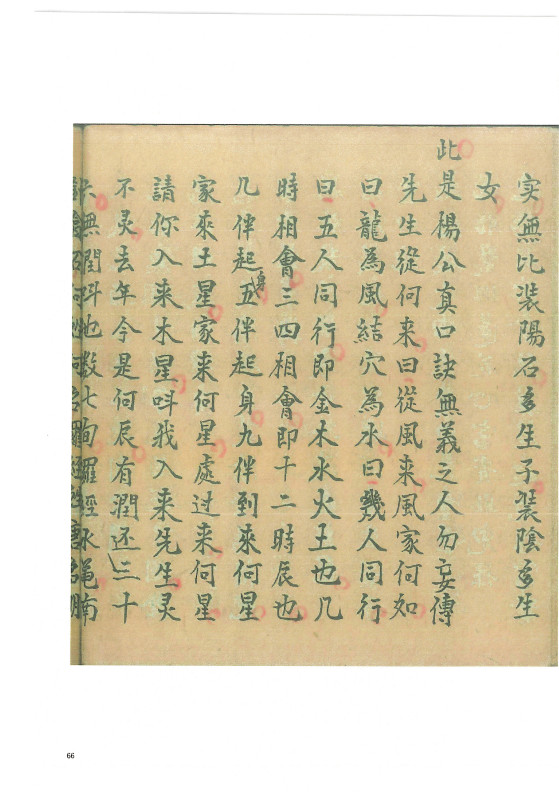 實無比裝陽石多生子裝陰多生
女
此是楊公真口訣無義之人勿妄傳
先生從何来曰從風来風家何如
曰龍為風結穴為水曰幾人同行
曰五人同行即金木水火土也几
時相會三四相會即十二時辰也
几伴起身五伴起身九伴到來何星
家來土星家来何星處过来何星
請你入来木星呌我入来先生灵
不灵去年今是何辰有潤还三十
無閏
66